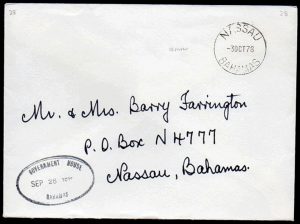 28
28
NASSAU
-3OCT78
BAHAMAS
Mr. & Mrs. Barry Farrington
P.O. Box N4777
Nassau, Bahamas.
GOVERNMENT HOUSE
SEP 28
BAHAMAS